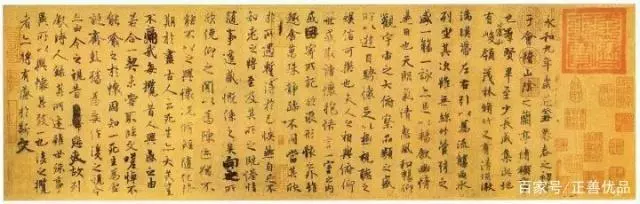 永和九年歲在癸丑暮春之初會
于會稽山陰之蘭亭脩稧事
也羣賢畢至少長咸集此地
有崇山峻領茂林脩竹又有清流激
湍暎帶左右引以為流觴曲水
列坐其次雖無絲竹管弦之
盛一觴一詠亦足以暢敘幽情
是日也天朗氣清惠風和暢仰
觀宇宙之大俯察品類之盛
所以遊目騁懷足以極視聽之
娛信可樂也夫人之相與俯仰
一世或取諸懷抱悟言一室之內
或因寄所託放浪形骸之外雖
趣舍萬殊靜躁不同當其欣
於所遇暫得於己怏然自足不
知老之將至及其所之既惓情
隨事遷感慨係之矣向之所欣
俛仰之閒以為陳迹猶不
能不以之興懷況脩短隨化終
期於盡古人云死生亦大矣豈
不痛哉每攬昔人興感之由
若合一契未嘗不臨文嗟悼不
能喻之於懷固知一死生為虛
誕齊彭殤為妄作後之視今
亦由今之視昔悲夫故列
敘時人錄其所述雖世殊事
異所以興懷其致一也後之攬
者亦將有感於斯文
百家号/正善优品